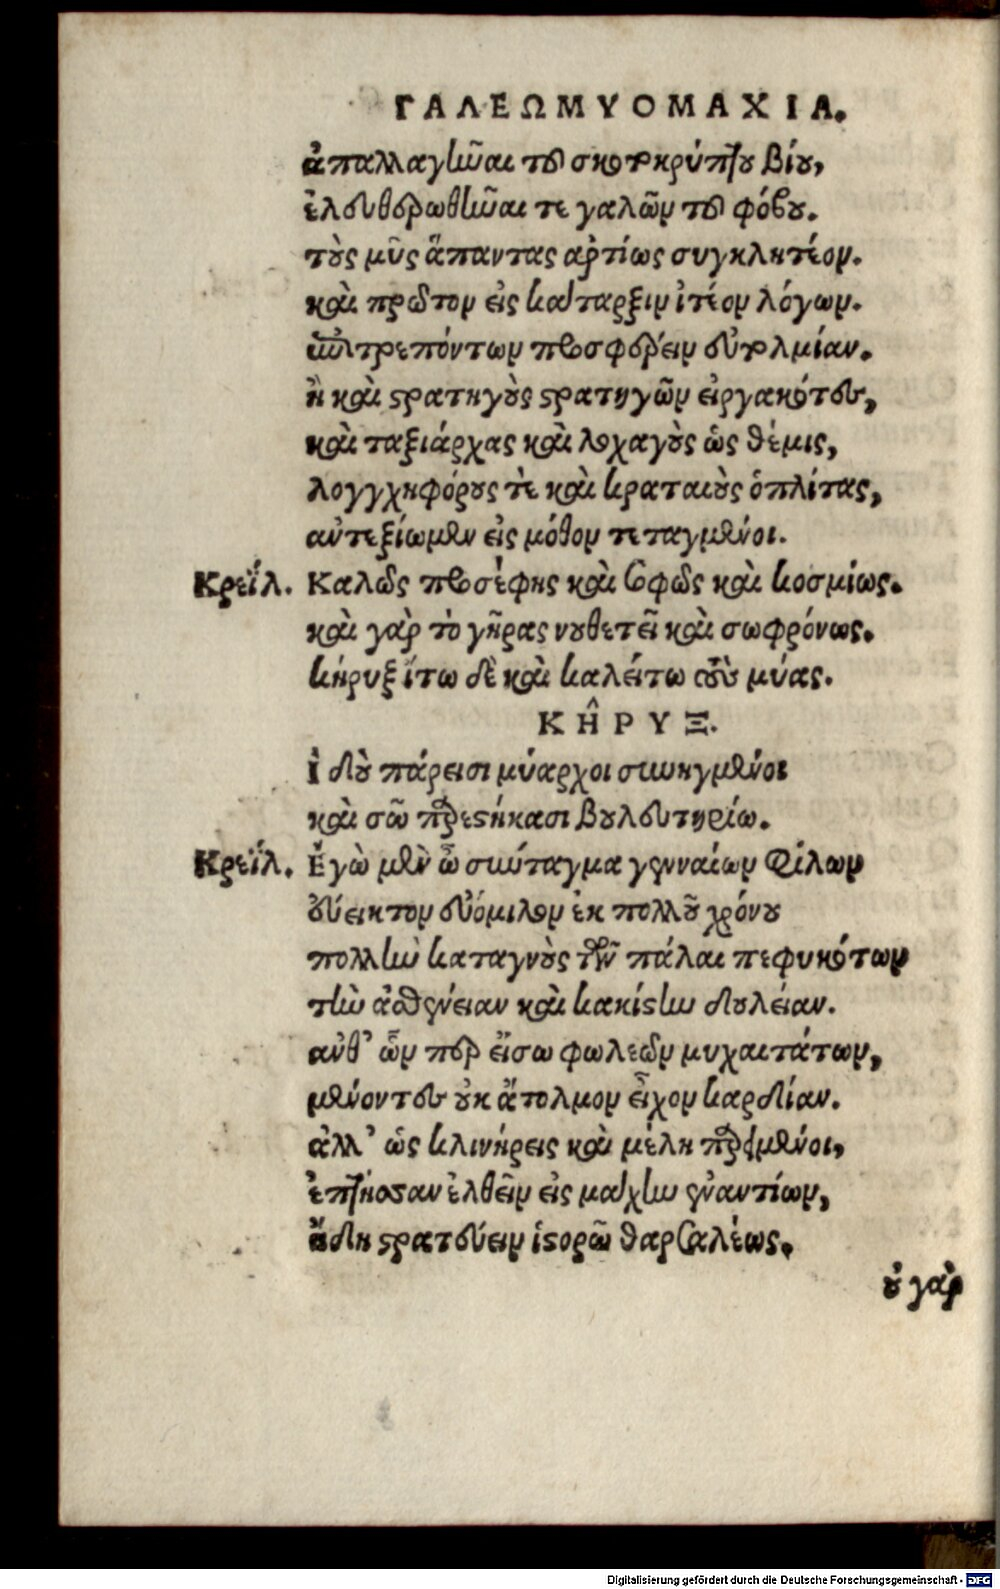 ΓΑΛΕΩΜΥΟΜΑΧΙΑ.
ἀπαλλαγῶναι τοῦ σκοτοκρύπτου βίου,
ἐλευθερωθῆναι τε γαλῶν τοῦ φόβου.
τοὺς μῦς ἅπαντας ἀρτίως συγκλητέον.
καὶ πρῶτον εἰς κάταρξιν ἰτέον λόγων.
προτρεπόντων προσφέρειν εὐτολμίαν.
ἢ καὶ στρατηγοὺς στρατηγῶν εἰργακότες,
καὶ ταξιάρχας καὶ λοχαγοὺς ὡς θέμις,
λογγχηφόρους τὲ καὶ κραταιοὺς ὁπλίτας,
αὐτεξίωμεν εἰς μόθον τεταγμένοι.
Κρεΐλ. Καλῶς προσέφης καὶ σοφῶς καὶ κοσμίως.
καὶ γὰρ τὸ γῆρας νουθετεῖ καὶ σωφρόνως.
κήρυξ ἴτω δὲ καὶ καλείτω τοὺς μύας.
ΚΗ͂ΡΥΞ.
Ἰδοὺ πάρεισι μύαρχοι συνηγμένοι
καὶ σῶ παρεστήκασι βουλευτηρίω.
Κρεΐλ. Ἐγὼ μὲν ὦ σύνταγμα γενναίων φίλων
οὐύεικτον εὐόμιλον ἐκ πολλοῦ χρόνου
πολλὴν καταγνοὺς τῶν πάλαι πεφυκότων
τὴν ἀσθένειαν καὶ κακίστην δουλείαν.
ἀνθ’ ὧν περ εἴσω φωλεῶν μυχαιτάτων,
μένοντες οὐκ ἄτολμον εἶχον καρδίαν.
ἀλλ’ ὡς κλινήρεις καὶ μέλη παρειμένοι,
ἐπτήοσαν ἐλθεῖν εἰς μάχην ἐναντίων,
ἤδη στρατεύειν ἱστορῶ θαρσαλέως.
οὐ γὰρ
Digitalisierung gefördert durch die Deutsche Forschungsgemeinschaft - DFG